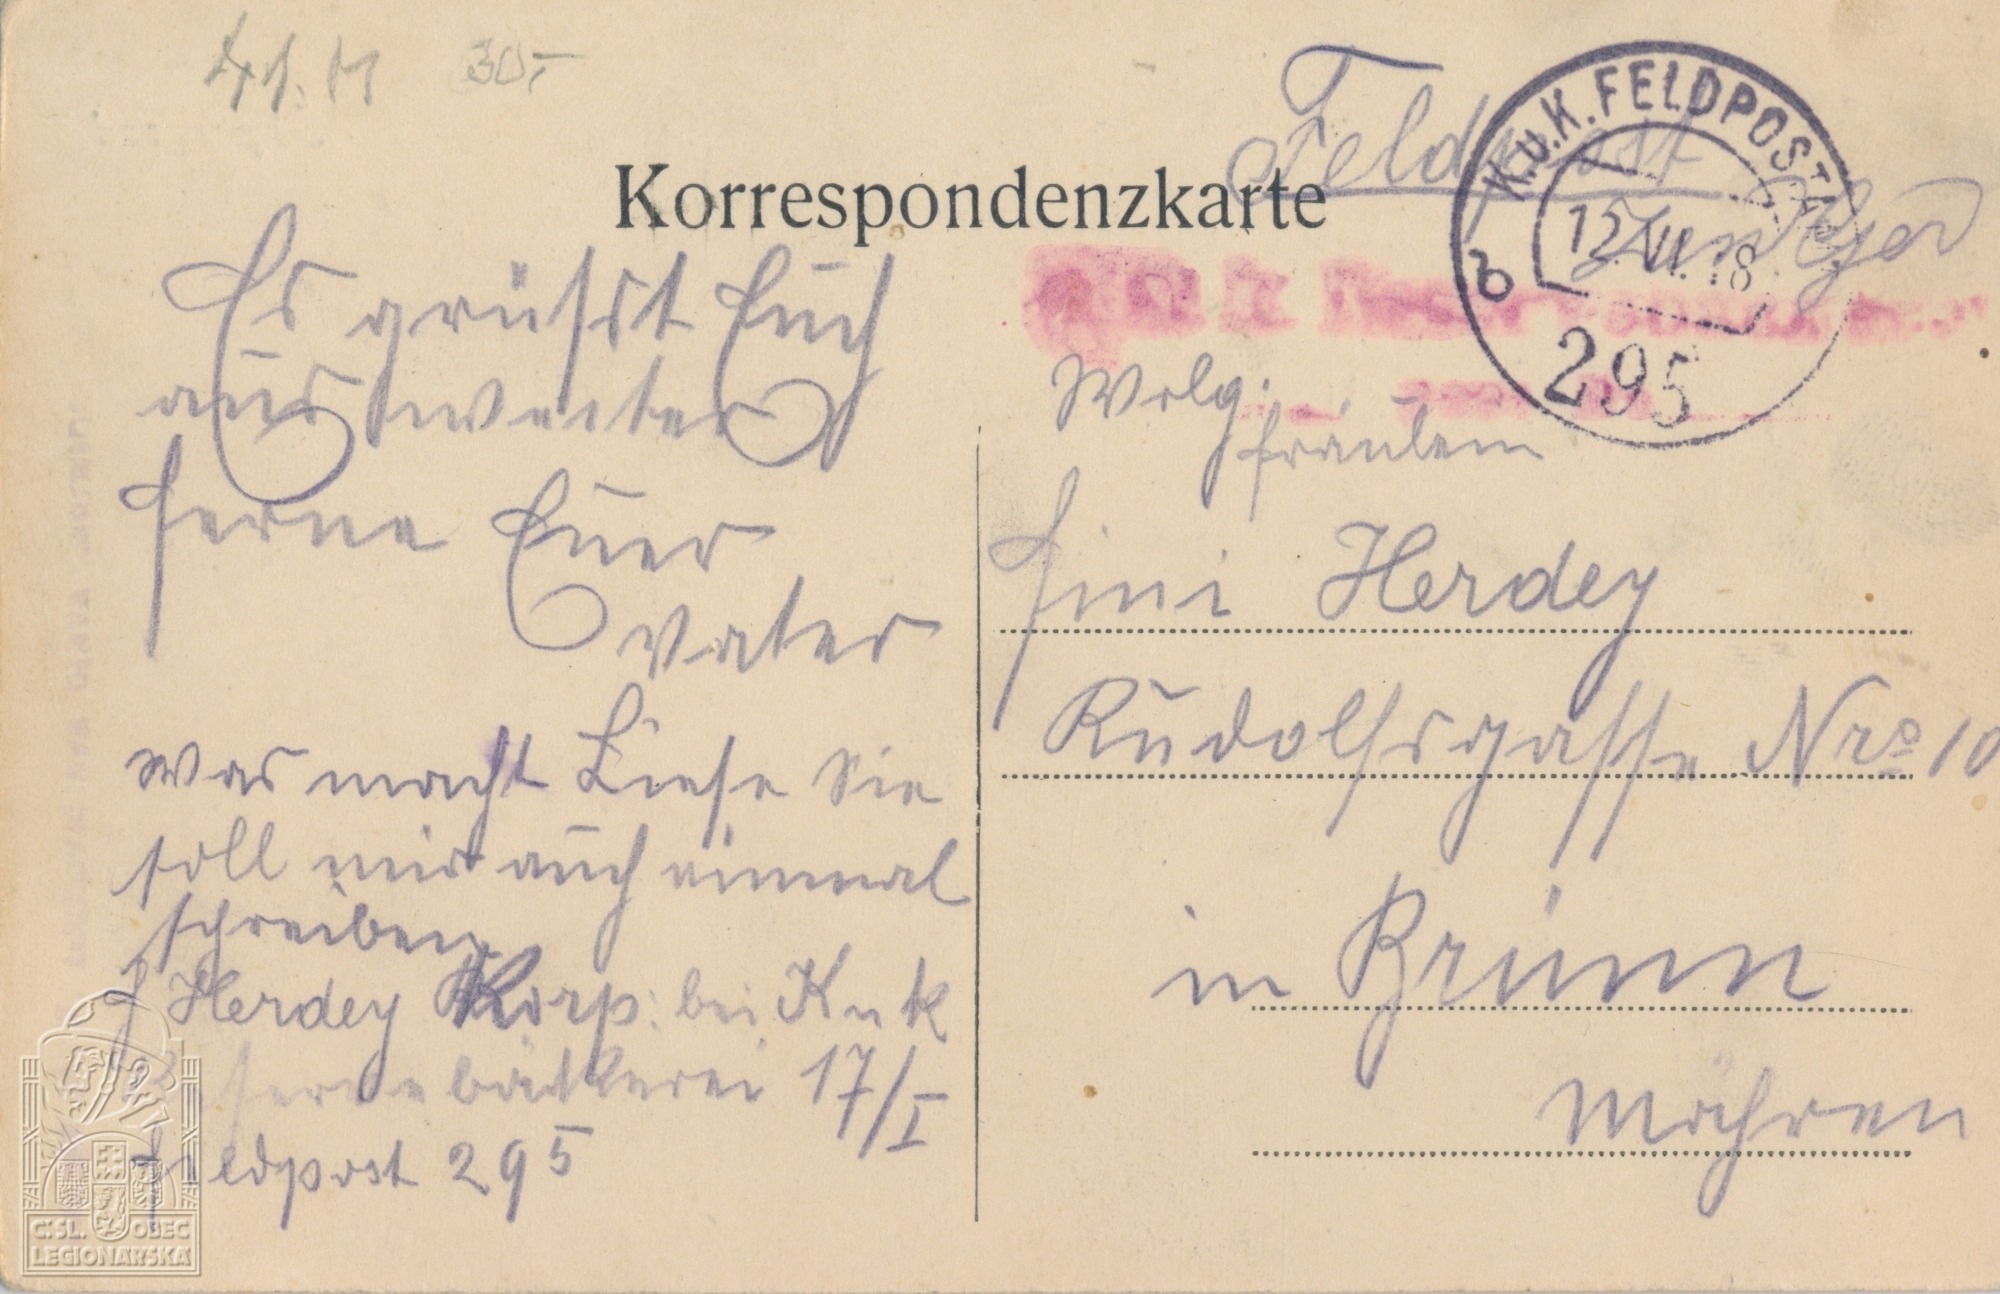 41.M 30,-
Korrespondenzkarte
Feldpost
K.u.K. FELDPOSTAMT
12.VII.18
b
295
Es grüsst Euch
aus weiter
ferne Euer
Vater
was macht Liese Sie
soll mir auch einmal
schreiben
J Herdey Korp: bei K u k
bäckerei 17/I
Feldpost 295
Wolg.
Fräulein
Fini Herdey
Rudolfsgasse Nro 10
in Brünn
Mähren
Č.SL. OBEC
LEGIONÁŘSKÁ